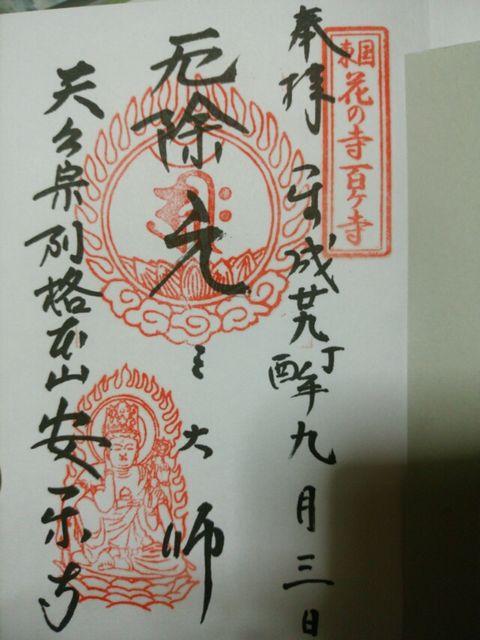 東国花の寺百ヶ寺
奉拝 平成廿九丁酉年九月三日
厄除元三大師
天台宗別格本山安楽寺